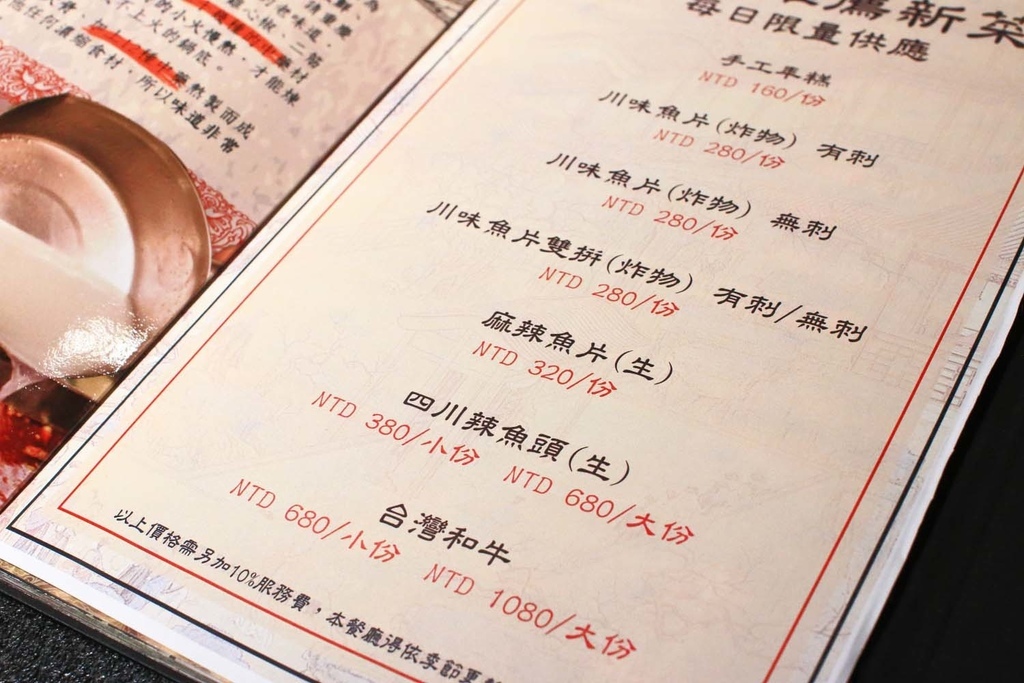 的小火慢熬，才能煉
上火的鍋底。
熬製而成
濃縮食材，所以味道非常
薦新菜
每日限量供應
手工年糕
NTD 160/份
川味魚片(炸物) 有刺
NTD 280/份
川味魚片(炸物) 無刺
NTD 280/份
川味魚片雙拼(炸物) 有刺/無刺
NTD 280/份
麻辣魚片(生)
NTD 320/份
四川辣魚頭(生)
NTD 380/小份 NTD 680/大份
台灣和牛
NTD 680/小份 NTD 1080/大份
以上價格需另加10%服務費，本餐廳得依季節更